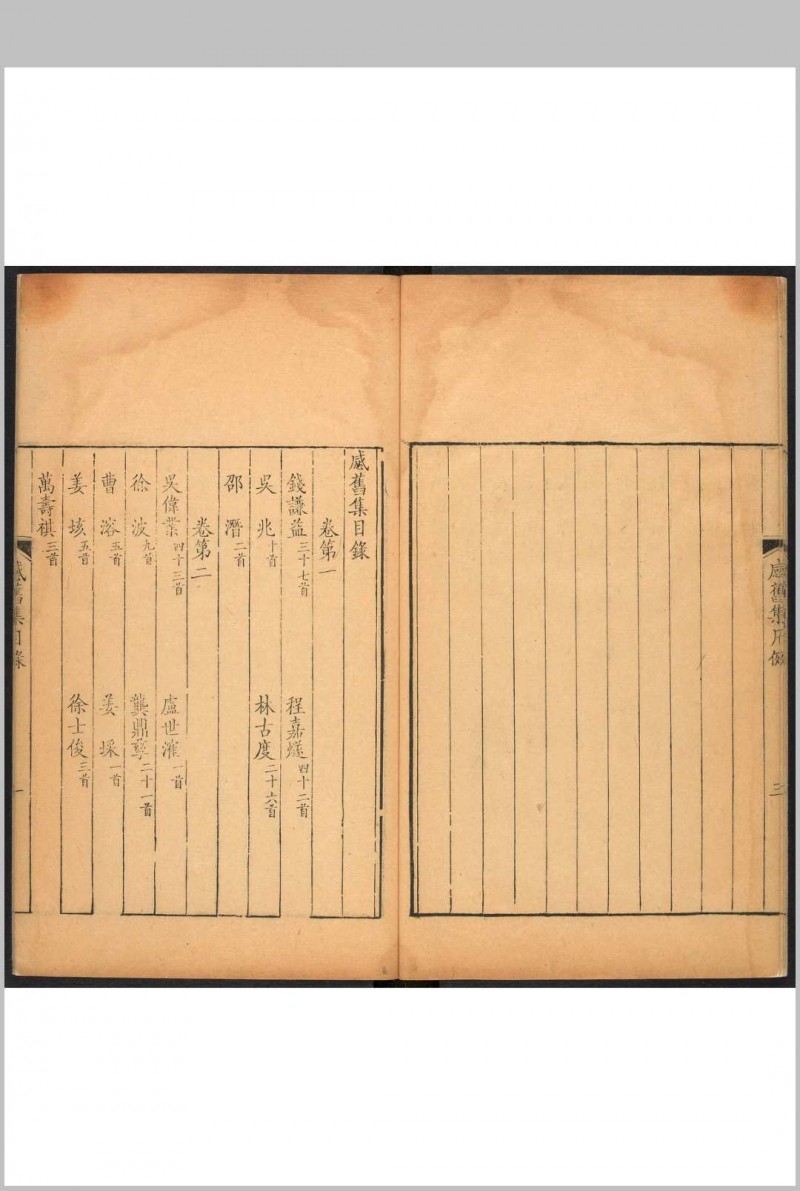 感舊集目錄
三
感舊集目錄
卷第一
錢謙益三十七首 程嘉燧四十二首
吳兆十首 林古度二十六首
邵潛二首
卷第二
吳偉業四十三首 盧世㴶一首
徐波九首 龔鼎孳二十一首
曹溶五首 姜埰一首
姜垓五首 徐士俊三首
萬壽祺三首
感舊集目錄
一